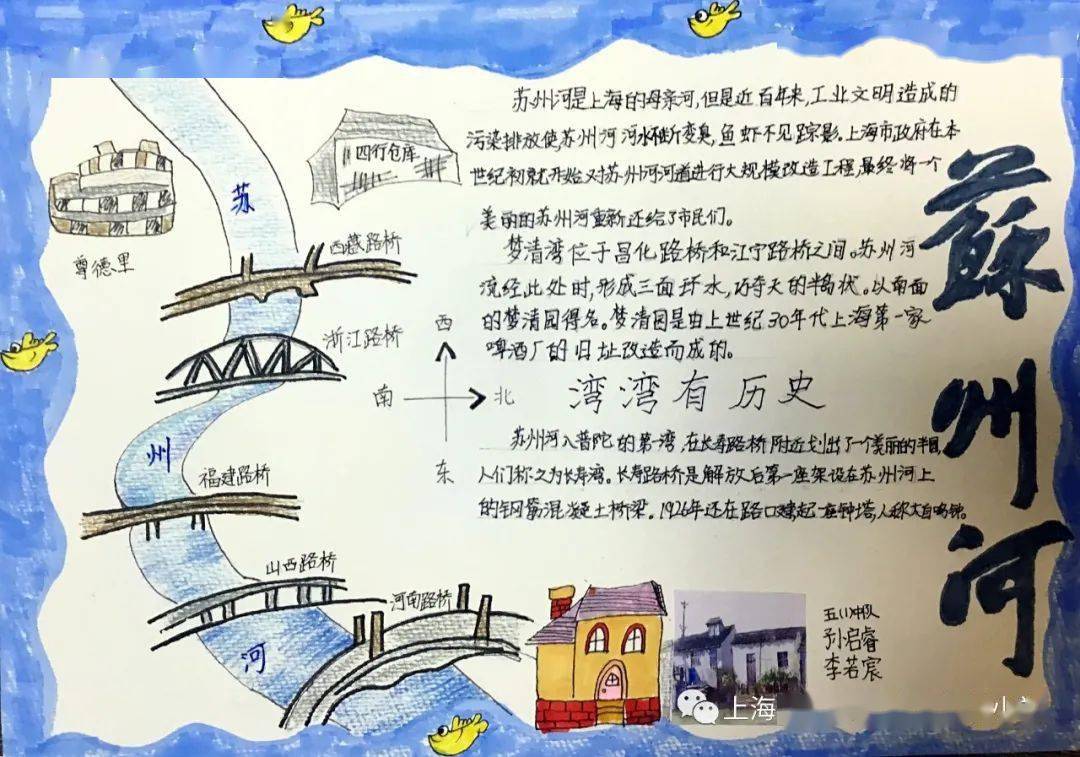 苏州河是上海的母亲河,但是近百年来,工业文明造成的
污染排放使苏州河河水渐变臭,鱼虾不见踪影.上海市政府在本
世纪初就开始对苏州河河道进行大规模改造工程,最终将一个
美丽的苏州河重新还给了市民们。
梦清湾位于昌化路桥和江宁路桥之间。苏州河
流经此处时,形成三面环水,巧夺天的半岛状。以南面
的梦清园得名。梦清园是由上世纪30年代上海第一家
啤酒厂的旧址改造而成的。
湾湾有历史
苏州河入普陀的第一湾,在长寿路桥附近划出了一个美丽的半圆,
人们称之为长寿湾。长寿路桥是解放后第一座架设在苏州河上
的钢筋混凝土桥梁。1926年还在路口建起一座钟塔,人称大自鸣钟。
蘇州河
苏
州
河
尊德里
四行仓库
西藏路桥
浙江路桥
福建路桥
山西路桥
河南路桥
西
南
北
东
五(1)中队
孙启睿
李若宸
上海